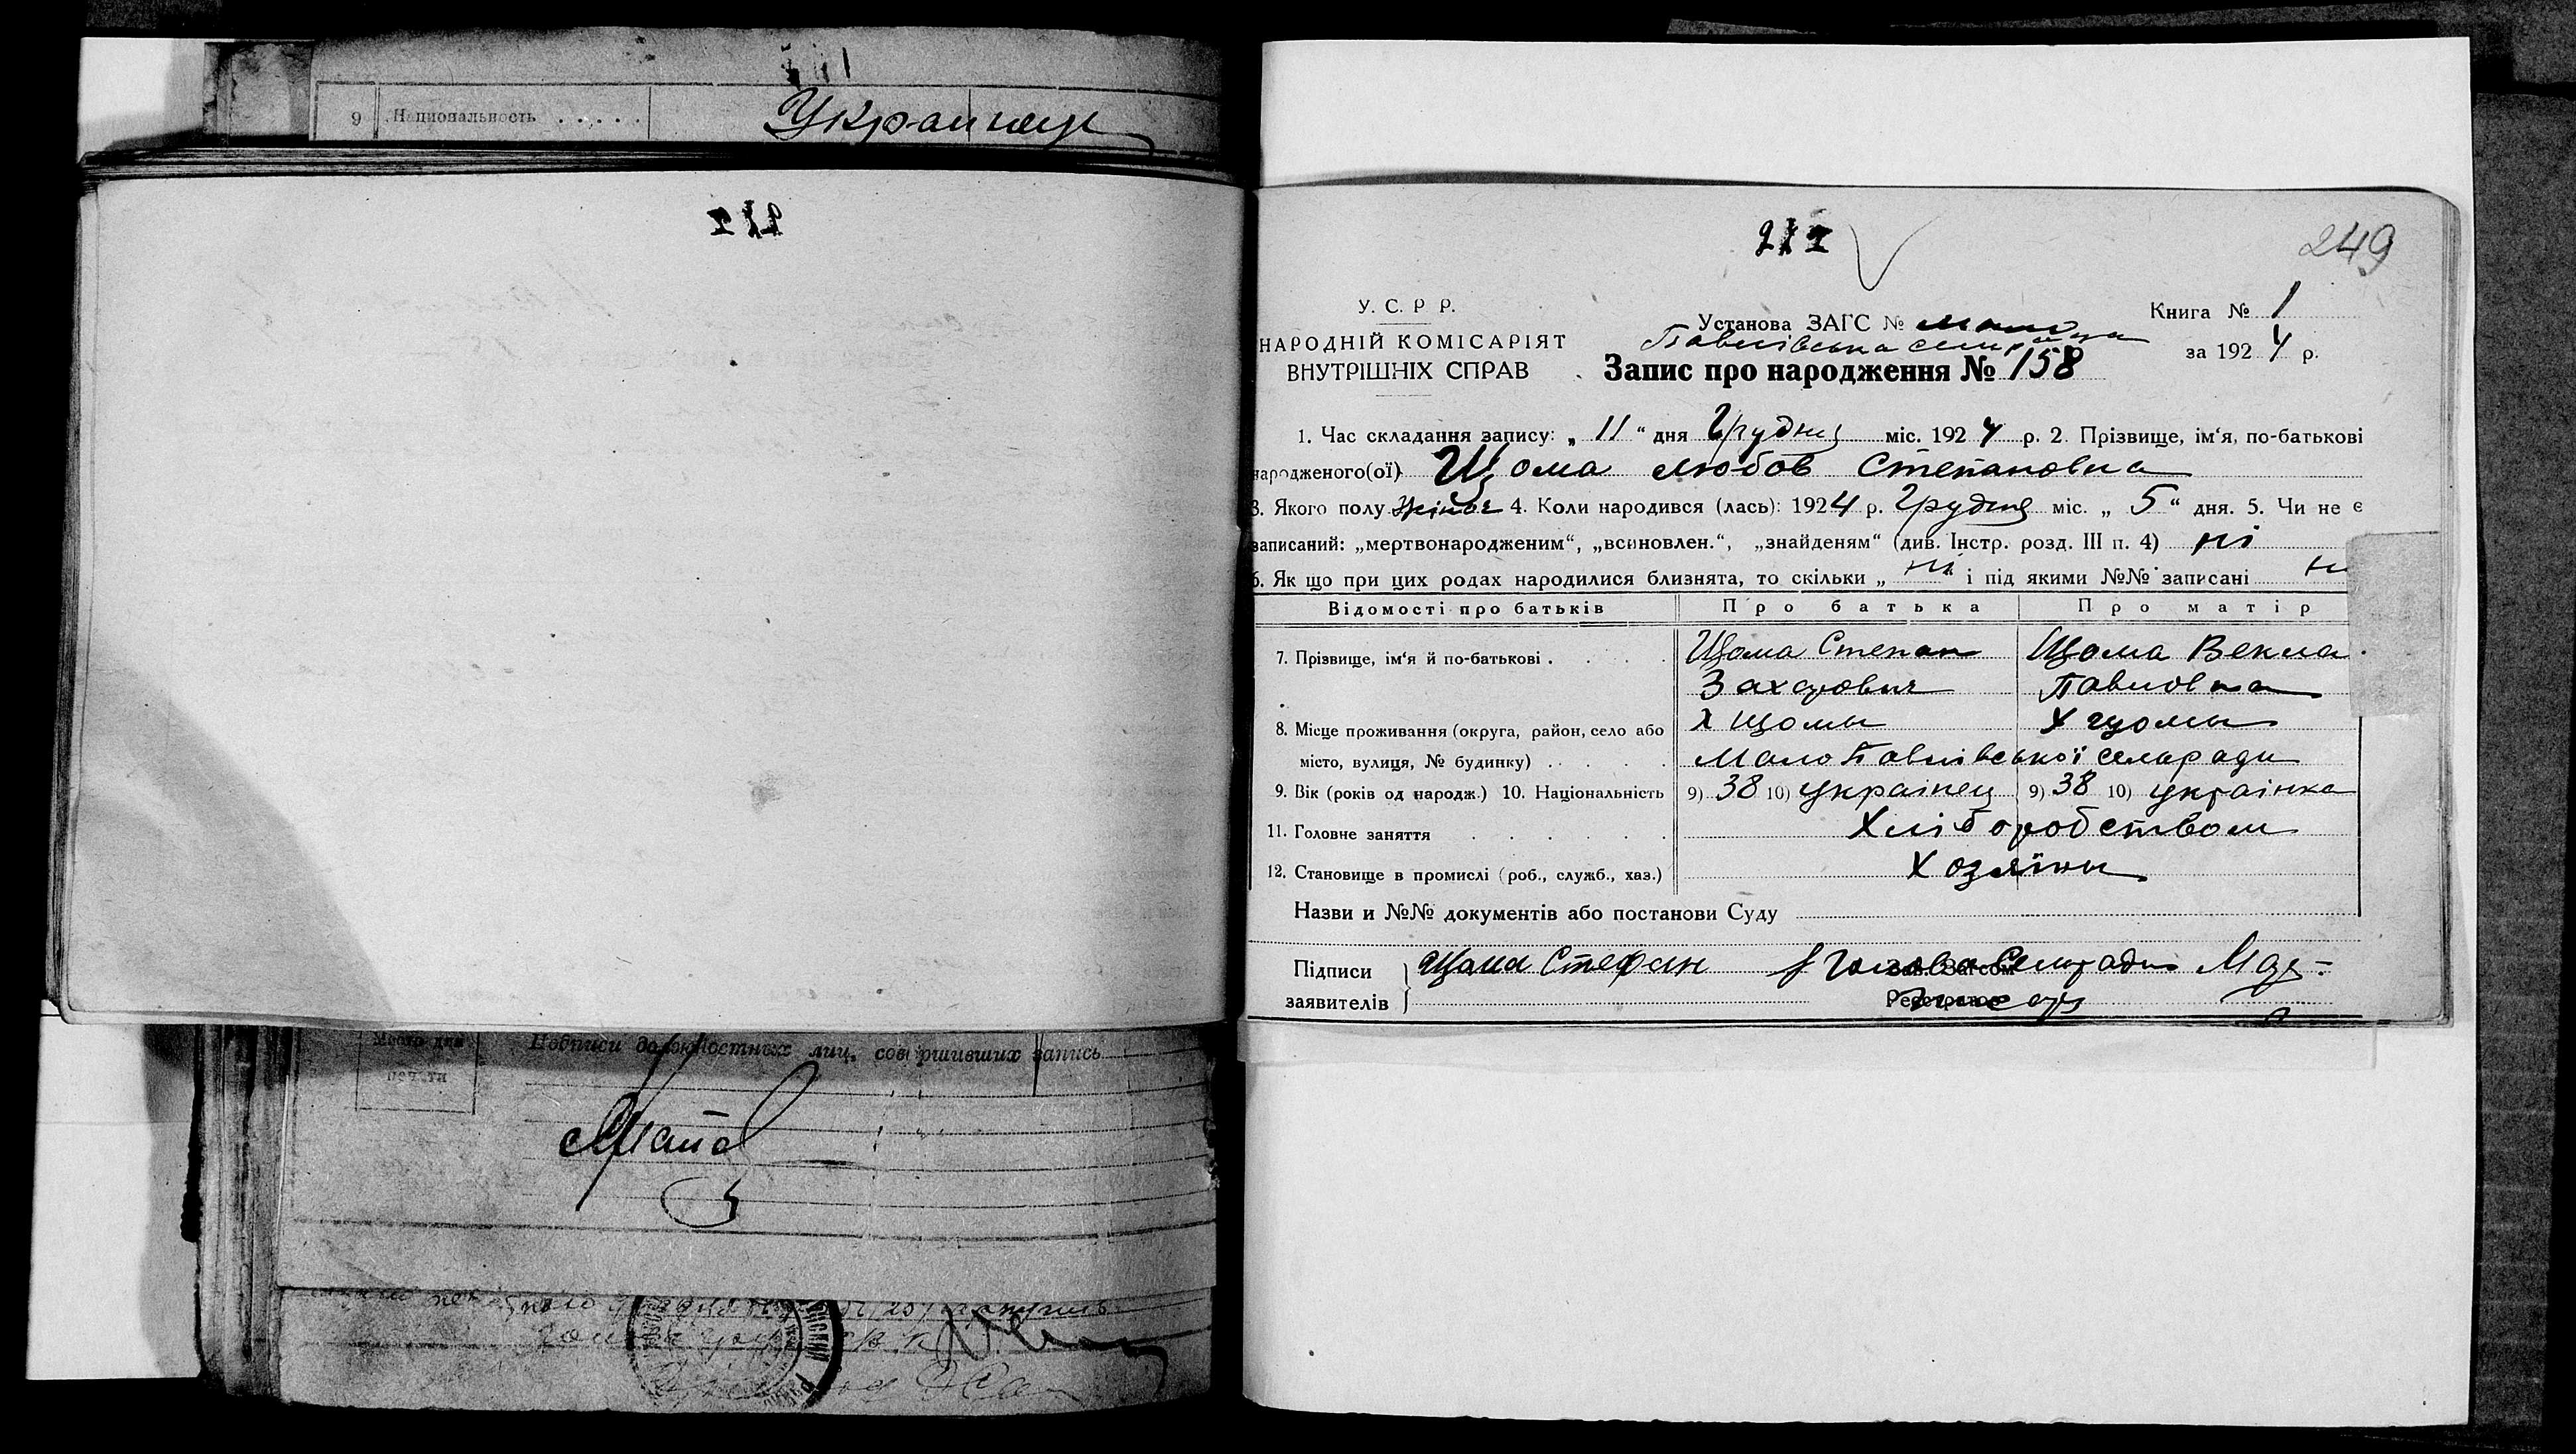 9 Национальность . . . . . Украинец
212
249
У. С. Р Р.
НАРОДНІЙ КОМІСАРІЯТ
ВНУТРІШНІХ СПРАВ
Установа ЗАГС № Мало
Павлівська сельрада
Запис про народження № 158
Книга № 1
за 1924 р.
1. Час складання запису: „ 11 “ дня Грудня міс. 1924 р. 2. Прізвище, ім‘я, по-батькові
народженого(ої) Щома Любов Степановна
3. Якого полу жіноч 4. Коли народився (лась): 1924 р. Грудня міс. „ 5 “ дня. 5. Чи не є
записаний: „мертвонародженим“, „всиновлен.“, „знайденям“ (див. Інстр. розд. III п. 4) ні
6. Як що при цих родах народилися близнята, то скільки „ ни “ і під якими №№ записані ни
Відомості про батьків Про батька Про матір
7. Прізвище, ім‘я й по-батькові . . . . . Щома Степан Щома Векла
Захарович Павловна
8. Місце проживання (округа, район, село або х Щомы х Щомы
місто, вулиця, № будинку) . . . . . Мало Павлівської сельради
9. Вік (років од народж.) 10. Національність 9) 38 10) українец 9) 38 10) українка
11. Головне заняття . . . . . . Хліборобством
12. Становище в промислі (роб., служб., хаз.) Хозяїны
Назви и №№ документів або постанови Суду
Підписи Щома Стефан Голова Сельради
заявителів
Подписи должностных лиц, совершивших запись